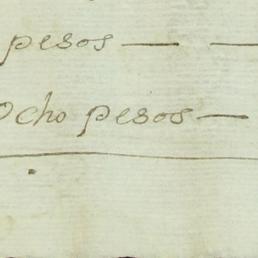 pesos — —
Ocho pesos —